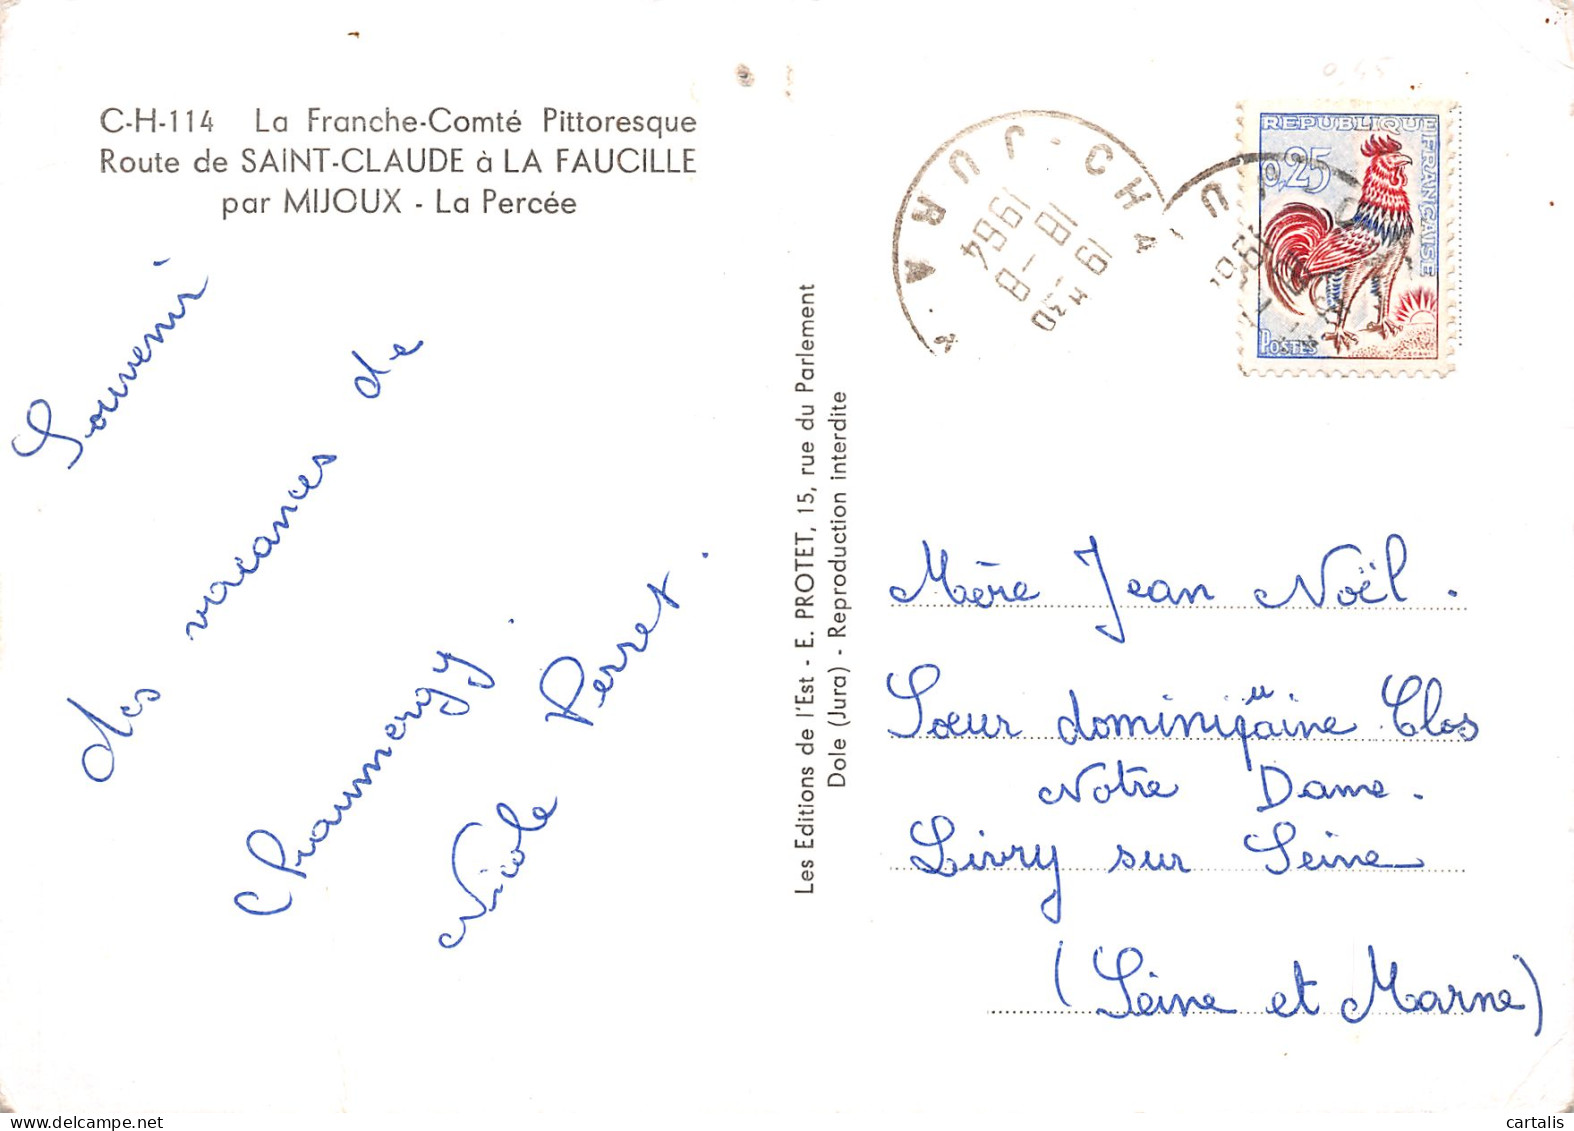 C-H-114 La Franche-Comté Pittoresque
Route de SAINT-CLAUDE à LA FAUCILLE
par MIJOUX - La Percée
Souvenir
des vacances de
Chaumergy.
Nicole Perret.
Les Editions de l'Est - E. PROTET, 15, rue du Parlement
Dole (Jura) - Reproduction interdite
JURA
19 H 30
18 - 8
1964
REPUBLIQUE FRANÇAISE
0,25
POSTES
0,45
Mère Jean Noël.
Sœur dominiquaine Clos
Notre Dame.
Livry sur Seine
(Seine et Marne)
cartalis